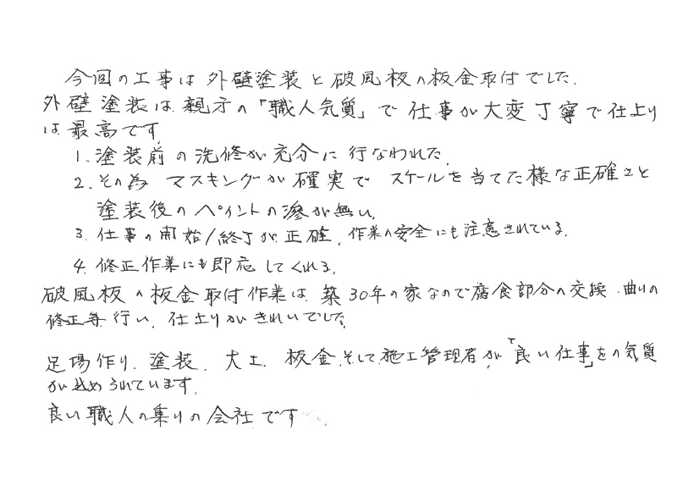 今回の工事は外壁塗装と破風板の板金取付でした.
外壁塗装は親方の「職人気質」で仕事が大変丁寧で仕上り
は最高です.
1. 塗装前の洗修が充分に行なわれた.
2. その為マスキングが確実でスケールを当てた様な正確さと
塗装後のペイントの滲が無い.
3. 仕事の開始/終了が正確, 作業の安全にも注意されている.
4. 修正作業にも即応してくれる.
破風板の板金取付作業は, 築30年の家なので腐食部分の交換, 曲りの
修正等行い, 仕上りがきれいでした.
足場作り, 塗装, 大工, 板金, そして施工管理者が「良い仕事」をの気質
が込められています.
良い職人の集りの会社です